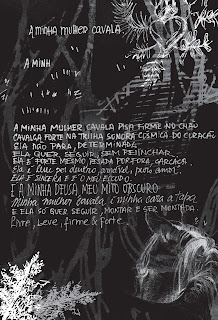 A MINHA MULHER CAVALA
A MINH
A MINHA MULHER CAVALA PISA FIRME NO CHÃO
CAVALGA FORTE NA TRILHA SONORA CÓSMICA DO CORAÇÃO
ELA NÃO PARA, DETERMINADA
ELA QUER SEGUIR, SEM RELINCHAR
ELA É FORTE MESMO PESADA POR FORA, CARCAÇA.
Ela é leve por dentro, amável, puro amor.
ELA É SINCERA E É O MEU ESCUDO.
É A MINHA DEUSA, MEU MITO OBSCURO
Minha mulher cavala e minha cara a tapa
E ELA SÓ QUER SEGUIR, MONTAR E SER MONTADA.
Livre, Leve, Firme & Forte.